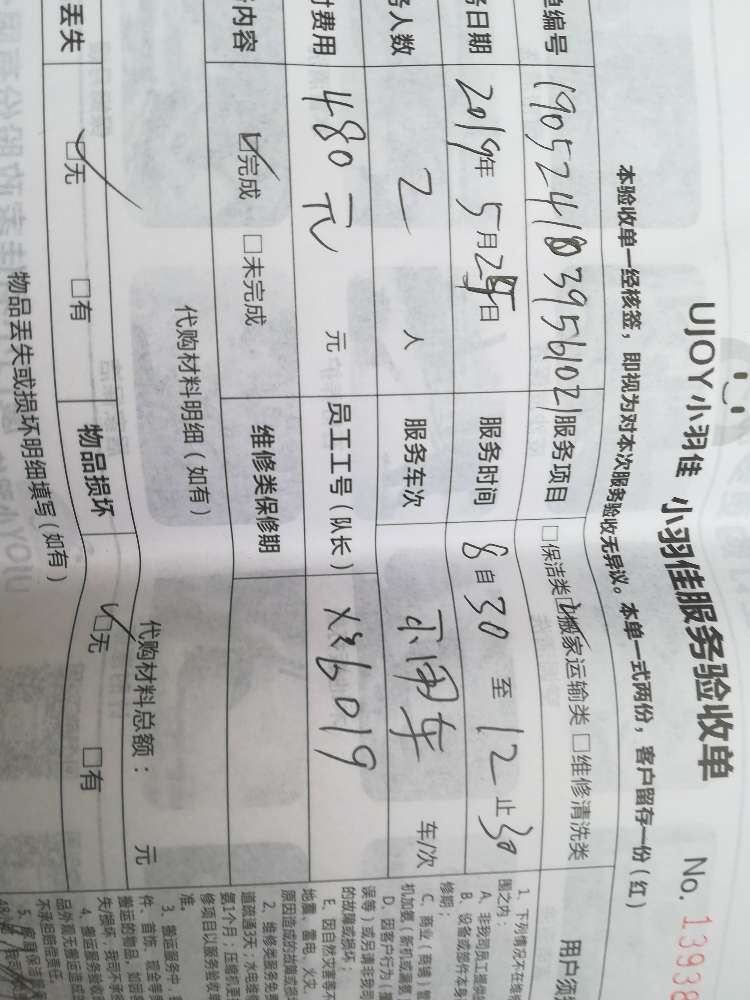 UJOY小羽佳 小羽佳服务验收单 No. 13938
本验收单一经核签，即视为对本次服务验收无异议。本单一式两份，客户留存一份（红）
单编号 服务项目 □保洁类 ☑搬家运输类 □维修清洗类 用户须
务日期 2019年 5月 日 服务时间 8自30 至 12止30
务人数 2 人 服务车次 车/次
付费用 480元 元 员工工号（队长）
内容 ☑完成 □未完成 维修类保修期
代购材料明细（如有） 代购材料总额： 元
丢失 ☑无 □有 物品损坏 ☑无 □有
物品丢失或损坏明细填写（如有）
1、下列情况不在维
围之内：
A、非我司员工提供
B、设备或部件本身
修期；
C、商业（商铺）暂
D、因客户行为
误等）或另请非我司
的故障或损坏；
E、因自然灾害等不
地震、雷电、火灾、
原因造成的故障或损
2、维修类服务免费
道疏通3天；水电维修
氨1个月；压缩机更
修项目以服务验收单
准。
3、搬运服务中，
件、首饰、现金等贵
搬运的物品，如因
失/损坏，我司不承担
4、搬运服务验收
品外观无搬运造成
不承担赔偿责任。